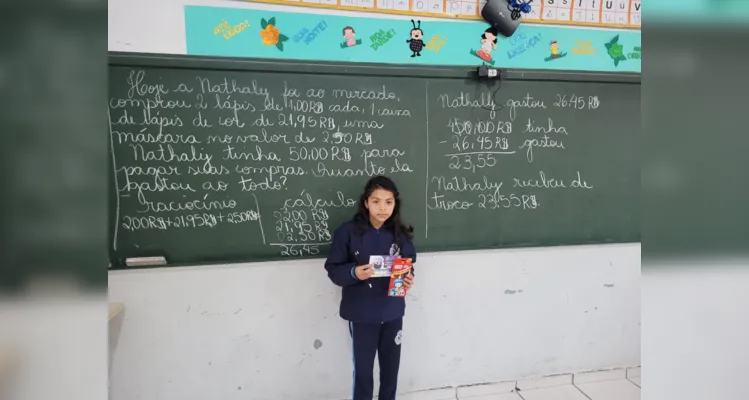 Hoje a Nathaly foi ao mercado,
comprou 2 lápis de 1,00R$ cada, 1 caixa
de lápis de cor de 21,95R$, uma
máscara no valor de 2,50R$
Nathaly tinha 50,00R$ para
pagar suas compras. Quanto ela
gastou ao todo?
raciocínio
2,00R$ + 21,95R$ + 2,50R$
cálculo
2,00 R$
21,95 R$
02,50 R$
26,45
Nathaly gastou 26,45 R$
50,00 R$ tinha
- 26,45 R$ gastou
23,55
Nathaly recebeu de
troco 23,55R$.
S T U V